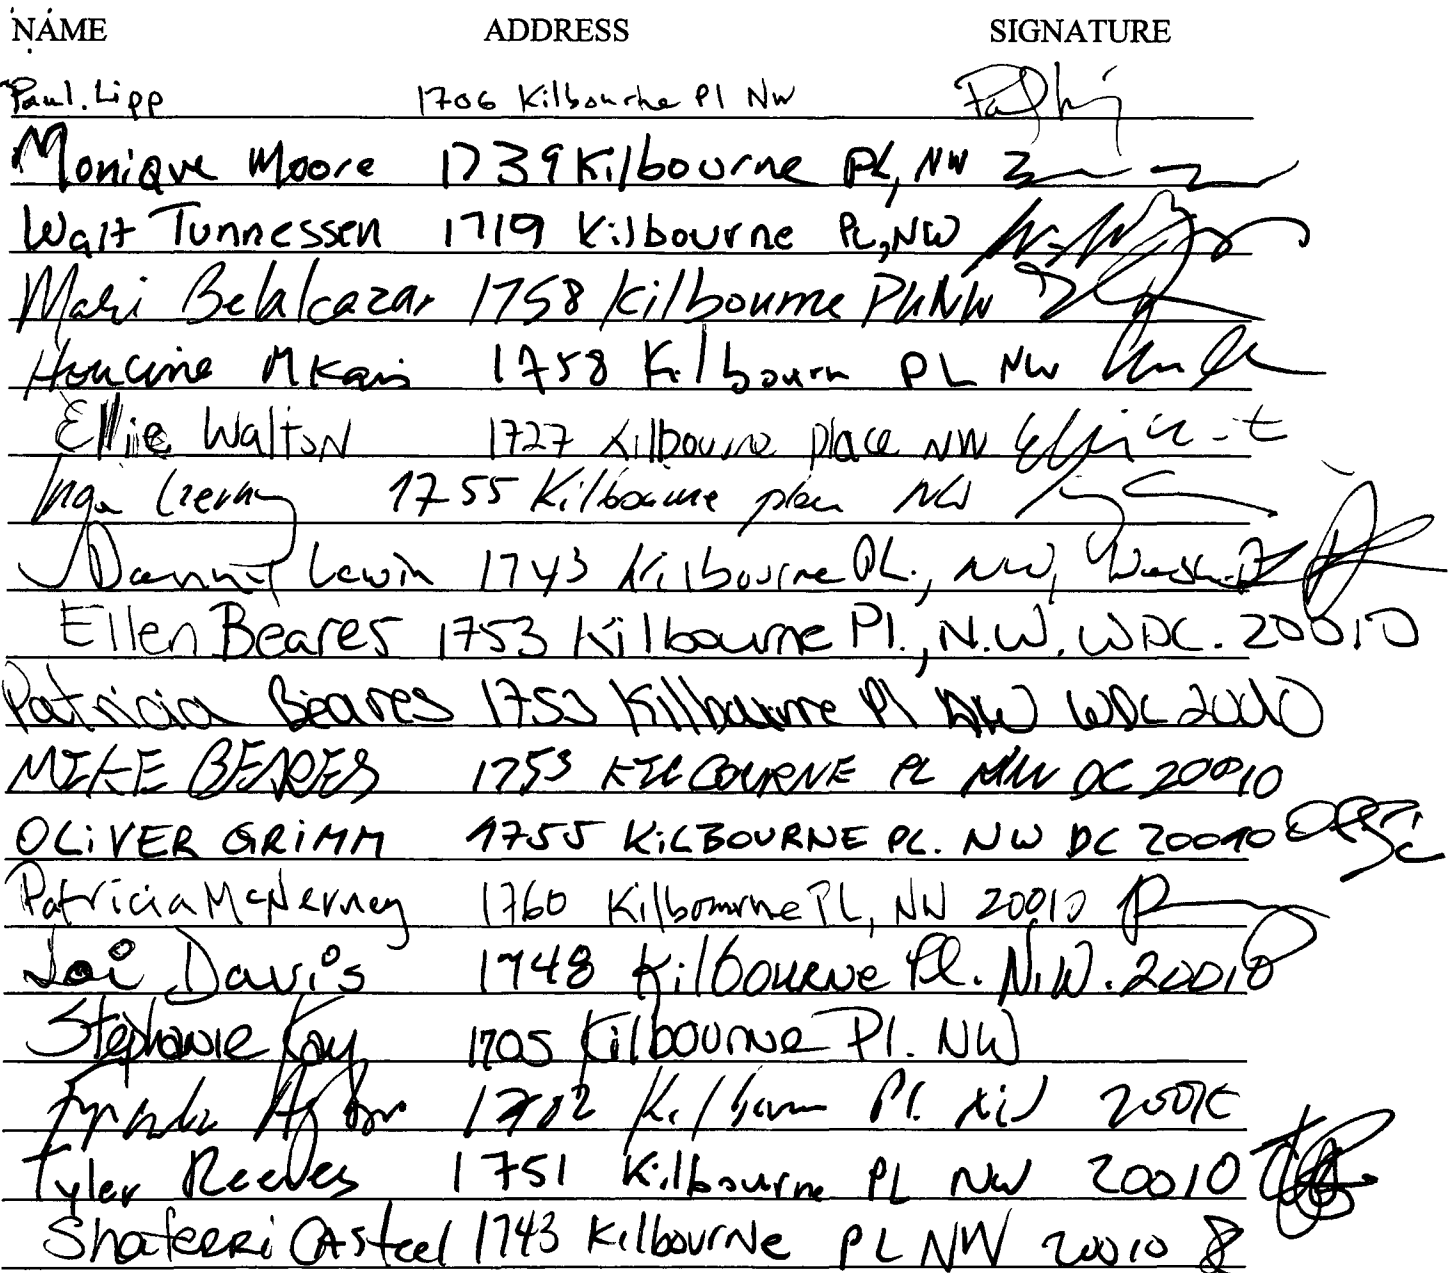 NAME ADDRESS SIGNATURE
Paul Lipp 1706 Kilbourne Pl NW
Monique Moore 1739 Kilbourne PL, NW
Walt Tunnessen 1719 Kilbourne PL, NW
Belalcazar 1758 Kilbourne Pl NW
1758 Kilbourn PL NW
Ellie Walton 1727 Kilbourne place NW
Inga 1755 Kilbourne NW
Danny Lewin 1743 Kilbourne Pl., NW,
Ellen Beares 1753 Kilbourne Pl., N.W. WDC. 20010
Patricia Beares 1753 Kilbourne Pl NW WDC 20010
MIKE BEARES 1753 KILBOURNE PL NW DC 20010
OLiVER GRiMM 1755 KiLBOURNE PL. NW DC 20010
Patricia McNerney 1760 Kilbourne PL, NW 20010
Davis 1748 Kilbourne Pl. N.W. 20010
Stephanie Kay 1705 Kilbourne Pl. NW
Pl.
Tyler Reeves 1751 Kilbourne PL NW 20010
Shaterri Casteel 1743 Kilbourne PL NW 20010